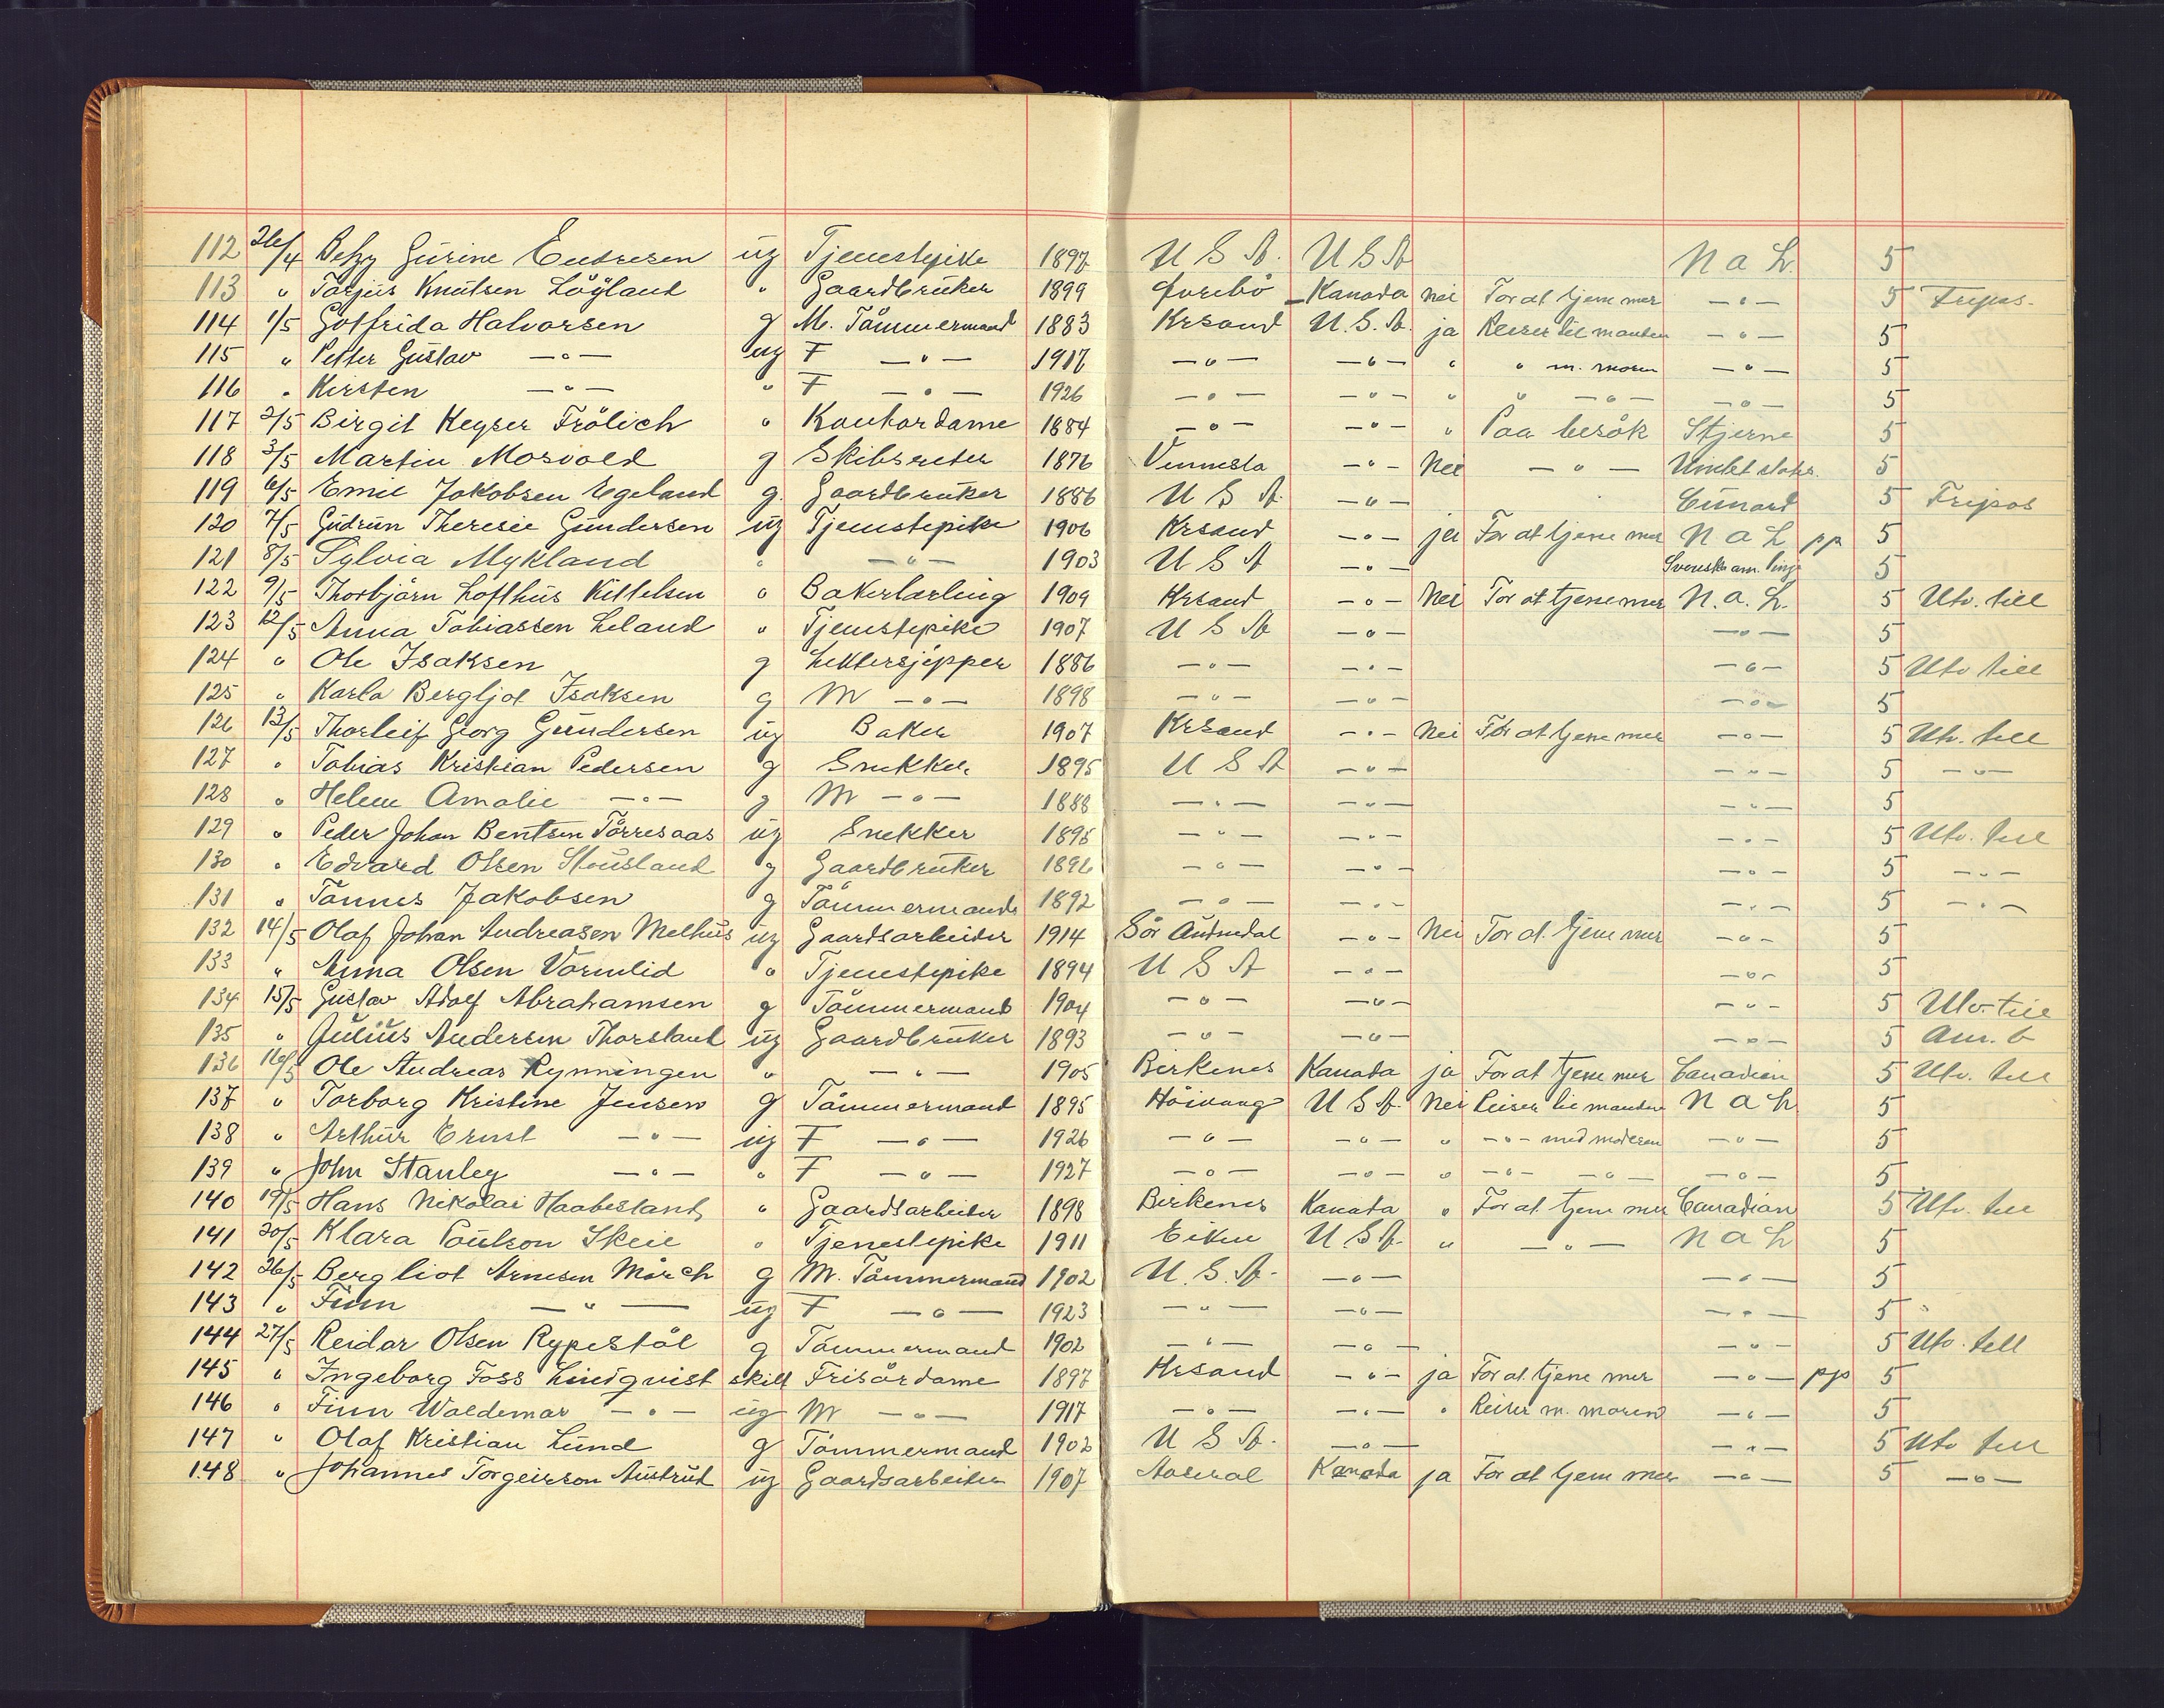 112 26/4 Betzy Gurine Endresen ug Tjenestepike 1897 U S A. U S A N a L. 5
113 " Torjus Knutsen Löyland " Gaardbruker 1899 Övrebö Kanada Nei For at tjene mer -"- 5 Fripas.
114 1/5 Gotfrida Halvorsen g M. Tömmermand 1883 Krsand U.S.A. ja Reiser til manden -"- 5
115 " Petter Gustav -"- ug F -"- 1917 -"- -"- " " m. moren -"- 5
116 " Kirsten -"- " F -"- 1926 -"- -"- " " -"- -"- 5
117 2/5 Birgit Keyser Frölich " Kontordame 1884 -"- -"- " Paa besök Stjerne 5
118 3/5 Martin Mosvold g Skibsreder 1876 Vennesla -"- Nei -"- Unitet stats. 5
119 6/5 Emil Jakobsen Egeland g. Gaardbruker 1886 U S A. -"- Cunard 5 Fripas
120 7/5 Gudrun Theresie Gundersen ug Tjenestepike 1906 Krsand -"- ja For at tjene mer N a L pp 5
121 8/5 Sylvia Mykland " -"- 1903 U S A -"- Svenska am. linje 5
122 9/5 Thorbjörn Lofthus Kittelsen " Bakerlærling 1909 Krsand -"- Nei For at tjene mer N. a. L. 5 Utv. till
123 12/5 Anna Tobiassen Leland " Tjenestepike 1907 U S A -"- -"- 5
124 " Ole Isaksen g Lektersjöpper 1886 -"- -"- -"- 5 Utv till
125 " Karla Bergljot Isaksen g M -"- 1898 -"- -"- -"- 5
126 13/5 Thorleif Georg Gundersen ug Baker 1907 Krsand -"- Nei For at tjene mer -"- 5 Utv. till
127 " Tobias Kristian Pedersen g Snekker 1895 U S A -"- -"- 5 -"-
128 " Helene Amalie -"- g M -"- 1888 -"- -"- -"- 5
129 " Peder Johan Bentsen Törresaas ug Snekker 1895 -"- -"- -"- 5 Utv. till
130 " Edvard Olsen Stousland g Gaardbruker 1896 -"- -"- -"- 5 -"-
131 " Tønnes Jakobsen g Tömmermand 1892 -"- -"- -"- 5 -"-
132 14/5 Olaf Johan Andreasen Melhus ug Gaardsarbeider 1914 Sör Audnedal -"- Nei For at tjene mer -"- 5
133 " Anna Olsen Vormlid " Tjenestepike 1894 U S A -"- -"- 5
134 15/5 Gustav Adolf Abrahamsen g Tömmermand 1904 -"- -"- -"- 5 Utv. till
135 " Julius Andersen Thorsland ug Gaardbruker 1893 -"- -"- -"- 5 Am. b
136 16/5 Ole Andreas Rynningen " -"- 1905 Birkenes Kanada ja For at tjene mer Canadien 5 Utv. till
137 " Torborg Kristine Jensen g Tömmermand 1895 Höivaag U S A. Nei Reiser til manden N a L 5
138 " Arthur Ernst -"- ug F -"- 1926 -"- -"- " -"- med moderen -"- 5
139 " John Stanley -"- " F -"- 1927 -"- -"- " -"- -"- -"- 5
140 19/5 Hans Nikolai Haabesland " Gaardsarbeider 1898 Birkenes Kanada " For at tjene mer Canadian 5 Utv. till
141 20/5 Klara Poulson Skeie " Tjenestepike 1911 Eiken U S A. " -"- N a L 5
142 26/5 Bergliot Arnesen Mörch g M. Tömmermand 1902 U. S. A. -"- -"- 5
143 " Finn -"- ug F -"- 1923 -"- -"- -"- 5
144 27/5 Reidar Olsen Rypestöl g Tömmermand 1902 -"- -"- -"- 5 Utv. till
145 " Ingeborg Foss Lindqvist skilt Frisördame 1897 Krsand -"- ja For at tjene mer -"- pp 5
146 " Finn Waldemar -"- ug M -"- 1917 -"- -"- " Reiser m. moren -"- 5
147 " Olaf Kristian Lund g Tömmermand 1902 U S A. -"- -"- 5 Utv till
148 " Johannes Torgeirson Austrud ug Gaardsarbeider 1907 Aaseral Kanada ja For at tjene mer -"- 5 -"-